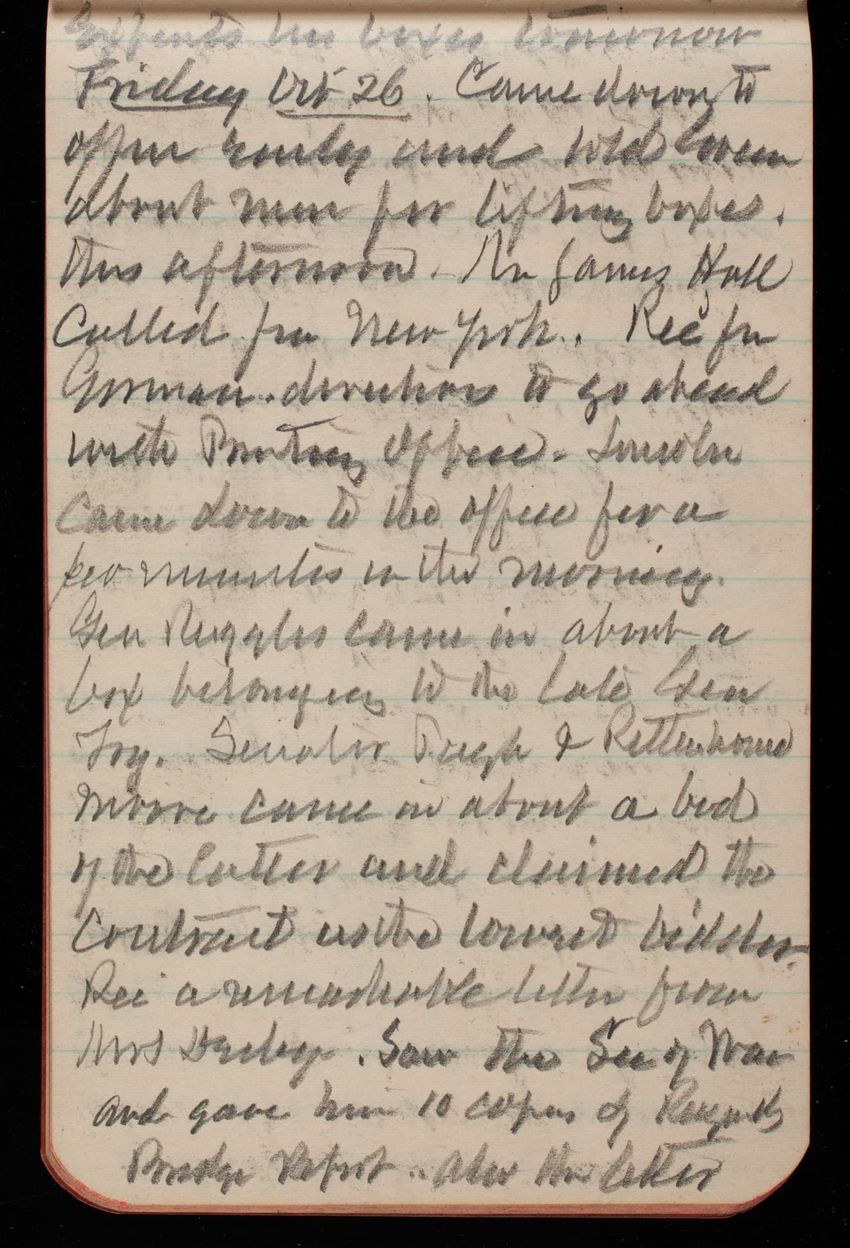 Expects his boxes tomorrow
Friday Oct 26. Came down to
office early and told
about men for lifting boxes.
this afternoon. Mr James Hall
Called from New York. Rec from
Gorman directions to go ahead
with Printing Office. Lincoln
Came down to the office for a
few minutes in the morning.
Gen Ruggles came in about a
box belonging to the late Gen
Fry. Senator & Rittenhouse
Moore came in about a bid
of the latter and claimed the
Contract as the lowest bidder.
Rec a remarkable letter from
Mrs Saw the Sec of War
and gave him 10 copies of
Bridge Report. also the letter